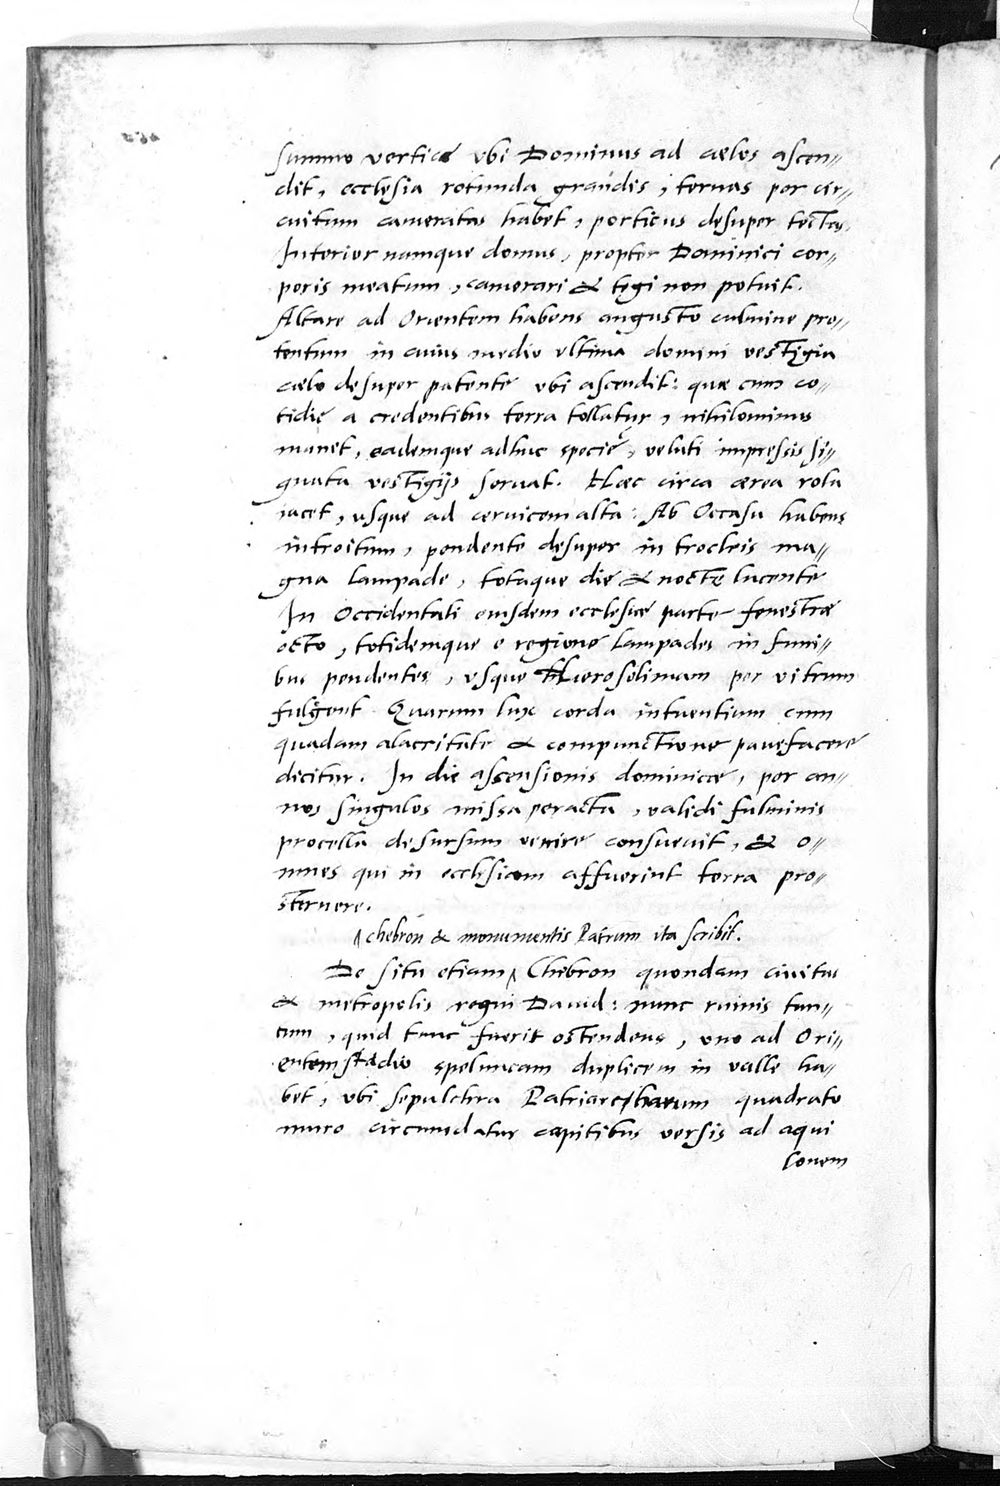 summo vertice vbi Dominus ad cælos ascen//
dit, ecclesia rotunda grandis, ternas per cir//
cuitum cameratas habet, porticus desuper tectas.
Interior namque domus, propter Dominici cor//
poris meatum, camerari & tegi non potuit.
Altare ad Orientem habens angusto culmine pro//
tentum in cuius medio vltima domini vestigia
cælo desuper patente vbi ascendit: quæ cum co//
tidie a credentibus terra tollatur, nihilominus
manet, eademque adhuc specie, veluti impressis si//
gnata vestigijs seruat. Hæc circa ærea rota
iacet, vsque ad ceruicem alta: Ab Occasu habens
introitum, pendente desuper in trocleis ma//
gna lampade, totaque die & nocte lucente
In Occidentali eiusdem ecclesiæ parte fenestræ
octo, totidemque e regione lampades in funi//
bus pendentes, vsque Hierosolimam per vitrum
fulgent. Quarum lux corda intuentium cum
quadam alacritate & compunctione pauefacere
dicitur. In die ascensionis dominicæ, per an//
nos singulos missa peracta, validi fulminis
procella desursum venire consueuit, & o//
mnes qui in ecclesiam affuerint terra pro//
sternere.
^ chebron & monumentis Patrum ita scribit.
De situ etiam ^ Chebron quondam ciuitas
& metropolis regni Dauid: nunc ruinis tan//
tum, quid tunc fuerit ostendens, vno ad Ori//
entem stadio speluncam duplicem in valle ha//
bet, vbi sepulchra Patriarcharum quadrato
muro circumdatur capitibus versis ad aqui
lonem